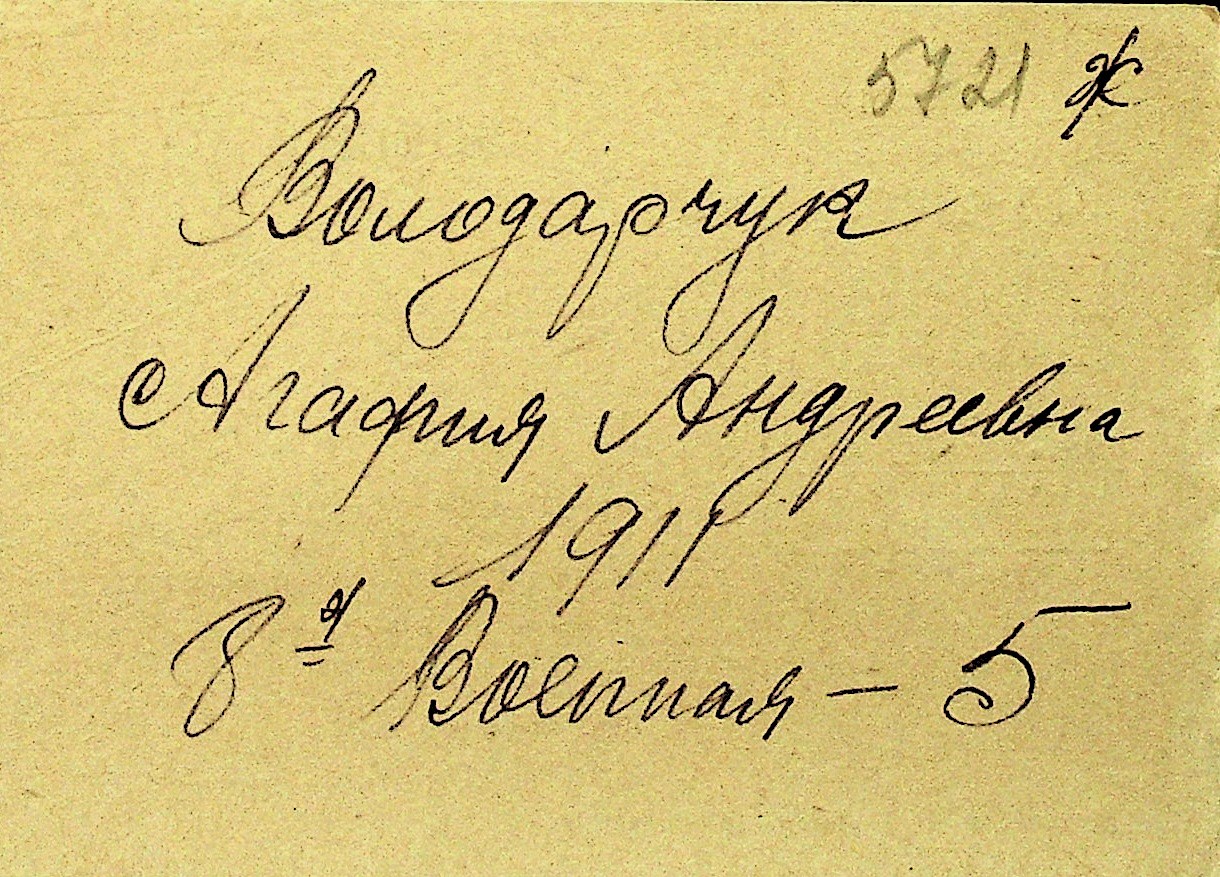 5721 Ж
Володарчук
Агафия Андреевна
1911
8я Военная - 5